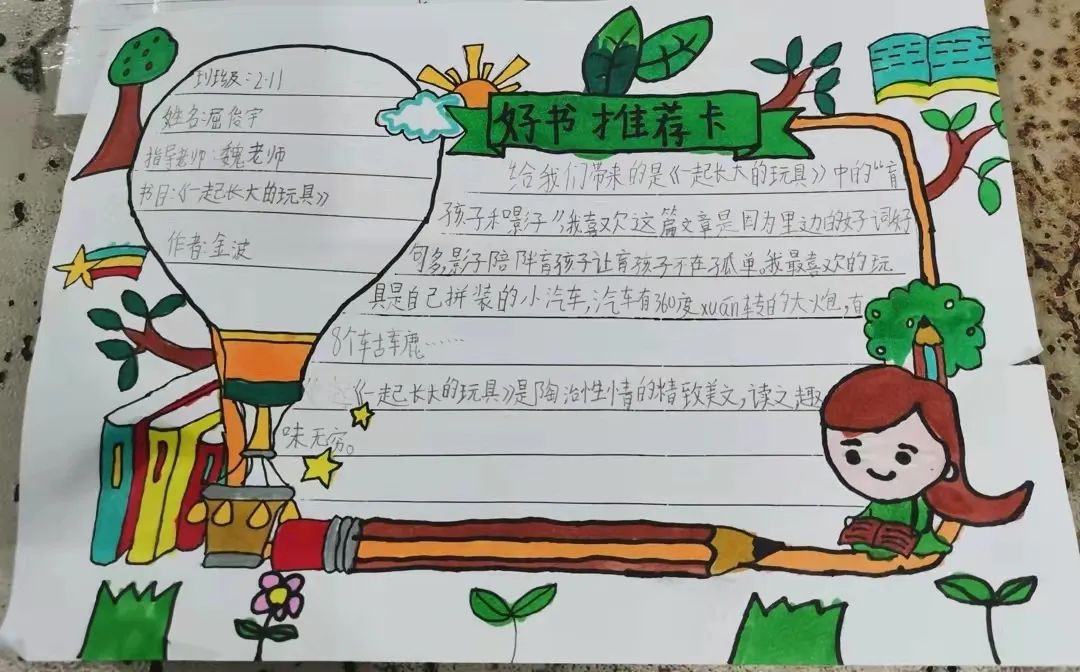 班级:2.11
姓名:屈俊宇
指导老师:魏老师
书目:《一起长大的玩具》
作者:金波
好书推荐卡
给我们带来的是《一起长大的玩具》中的“盲
孩子和影子”,我喜欢这篇文章是因为里边的好词好
句多,影子陪伴盲孩子让盲孩子不在孤单。我最喜欢的玩
具是自己拼装的小汽车,汽车有360度xuán转的大炮,有
8个车古车鹿……
《一起长大的玩具》是陶冶性情的精致美文,读之趣
味无穷。